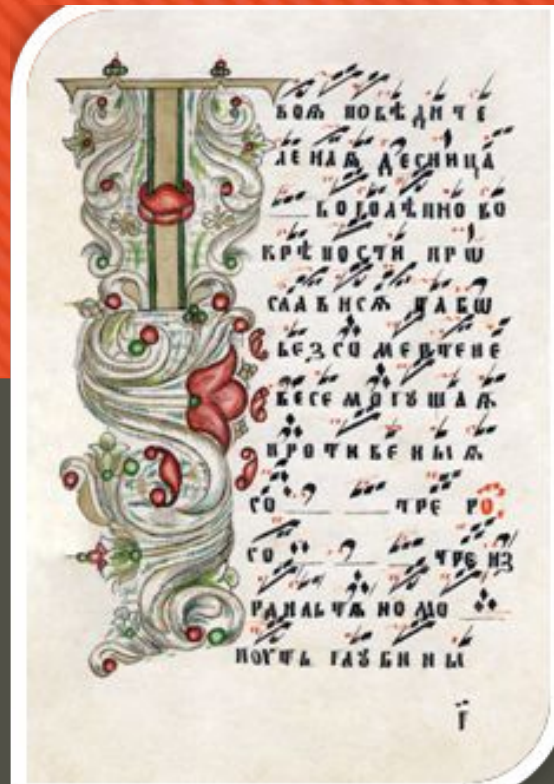 Т
ВОѦ ПОБѢДИТЕ
ЛЕНАѦ ДЕСНИЦА
БОГОЛѢПНО ВО
КРѢПОСТИ ПРѠ
СЛАВИСѦ ТА БѠ
БЕЗСОМЕРТЕНЕ
ВЕСЕМОГУЩАѦ
ПРОТИВЕНЫѦ
СО ТРЕ РО
СО ТРЕ ИЗ
РАИЛЬТѦНОМО
ПОУТЬ ГЛУБИНЫ
Г